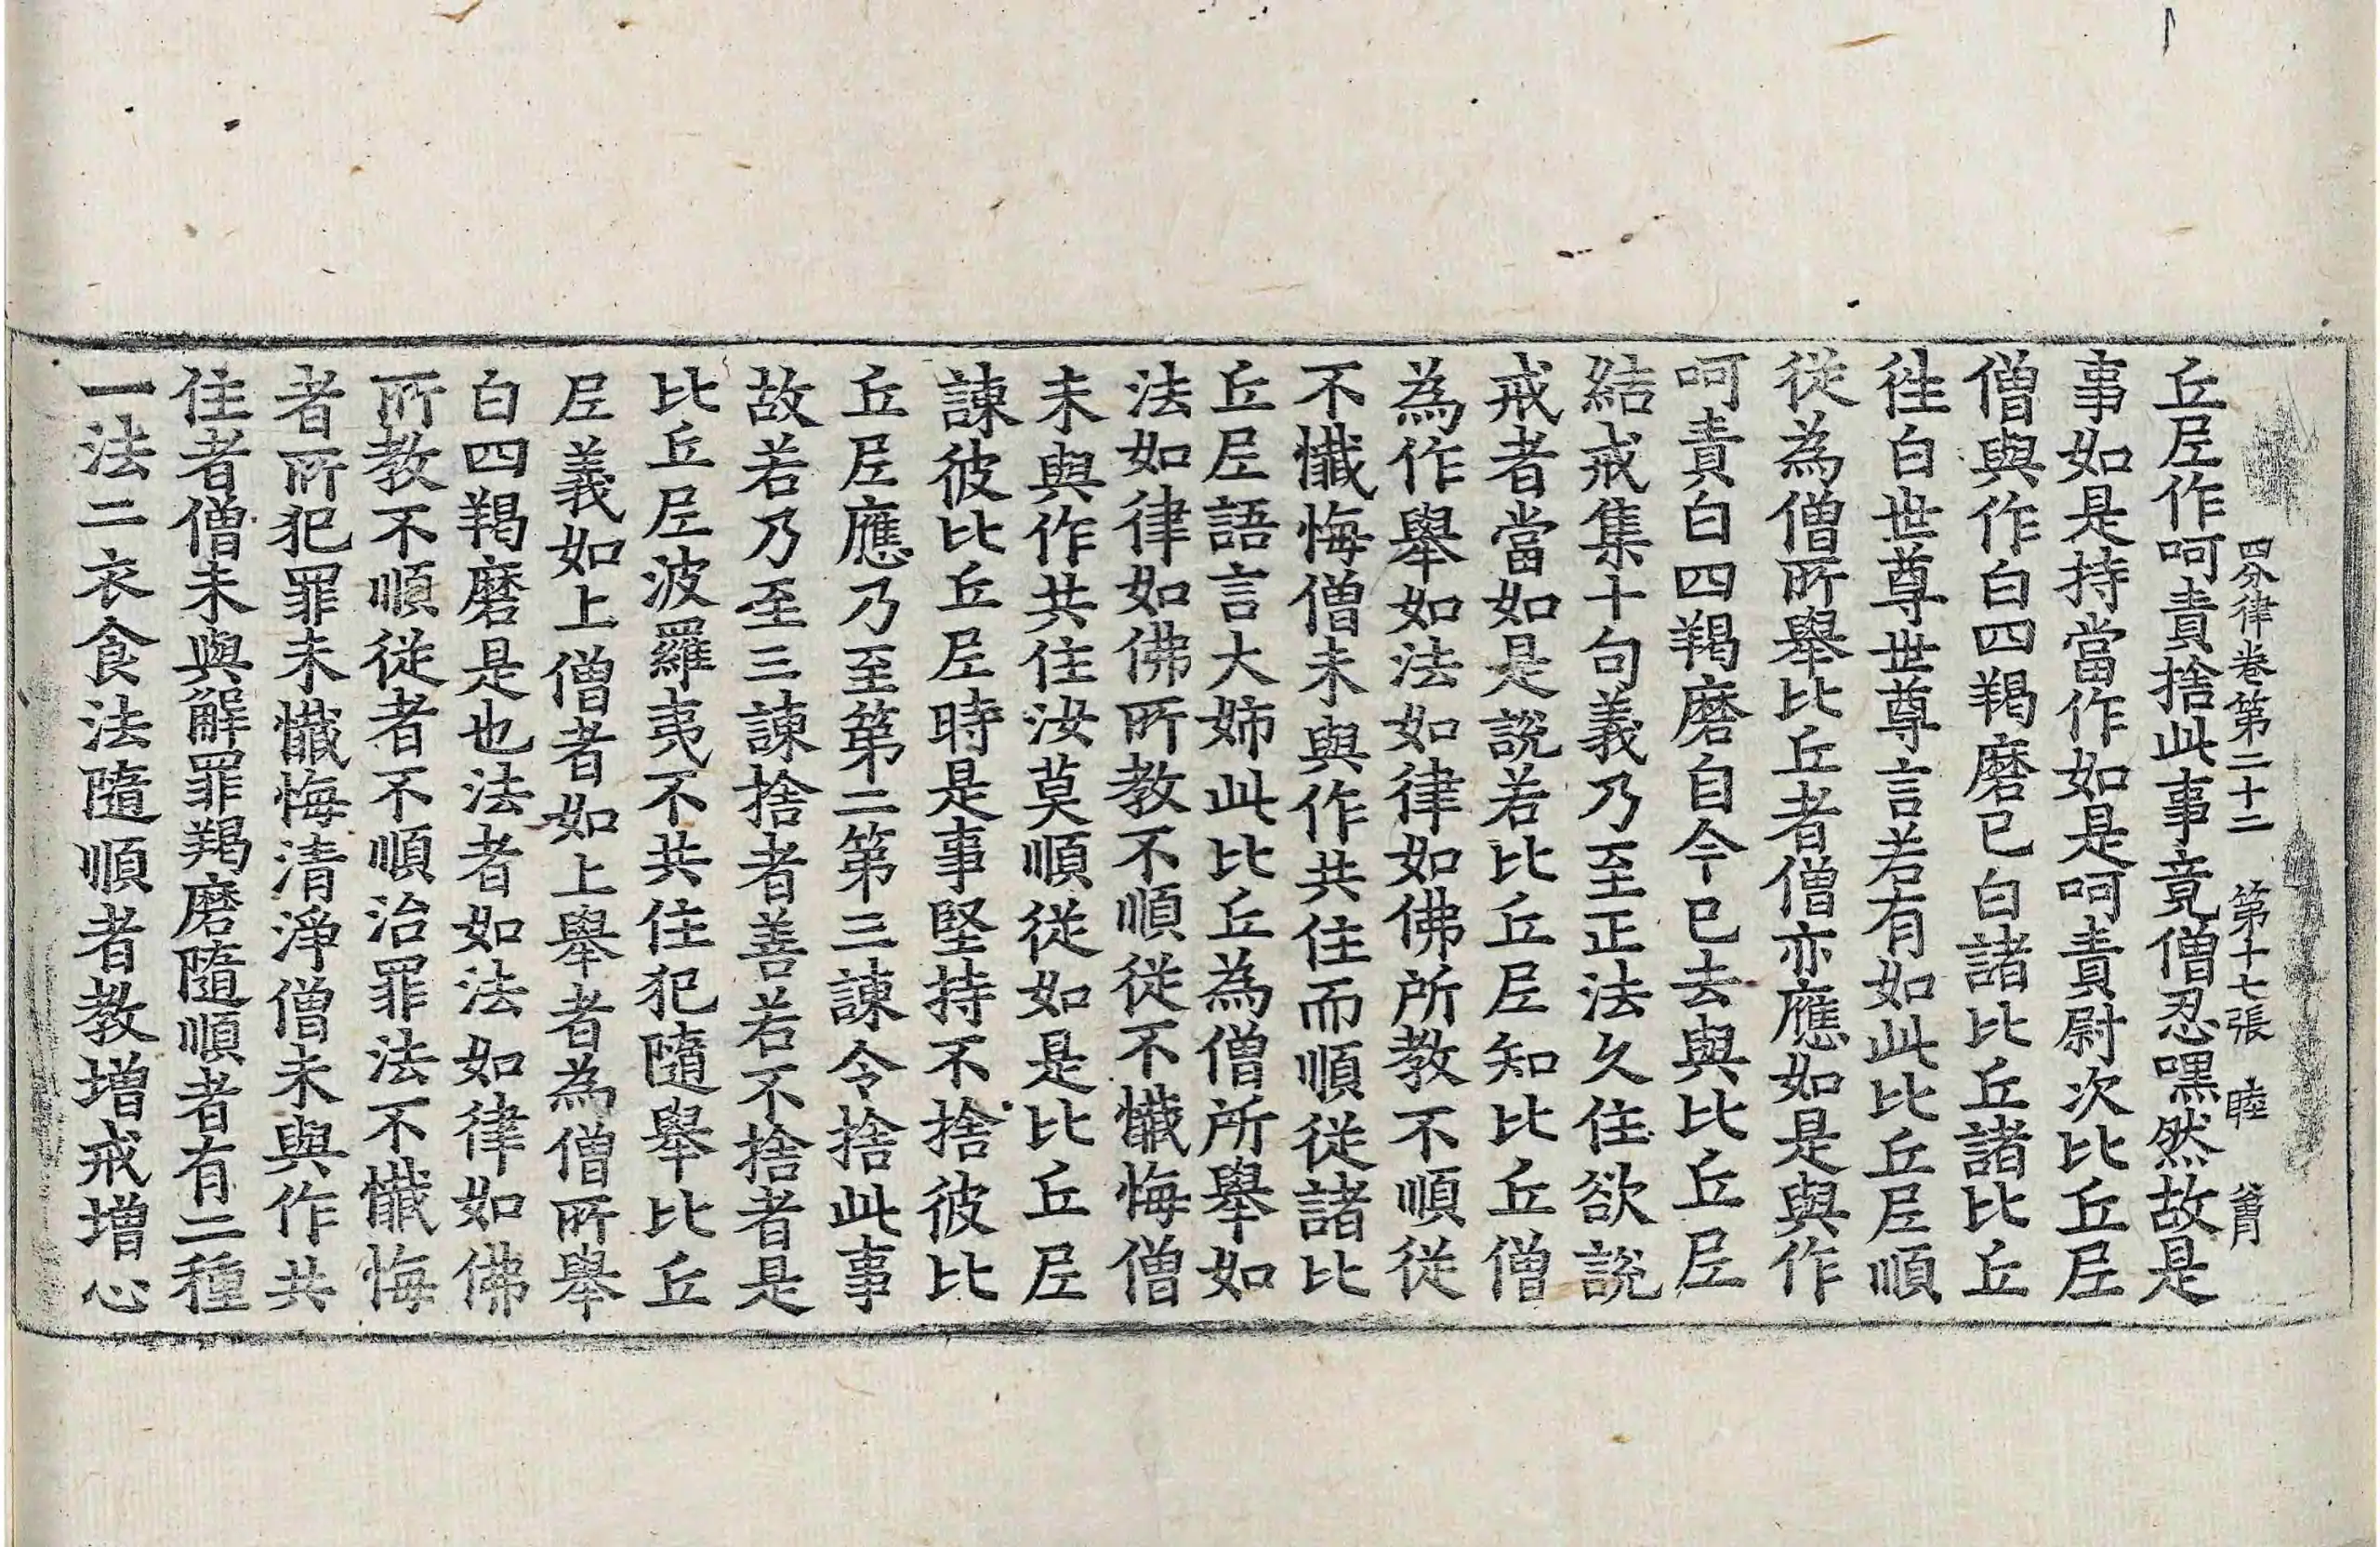 四分律卷第二十二　第十七張　睦
丘尼作呵責捨此事竟僧忍嘿然故是
事如是持當作如是呵責尉次比丘尼
僧與作白四羯磨已白諸比丘諸比丘
徃白世尊世尊言若有如此比丘尼順
從為僧所舉比丘者僧亦應如是與作
呵責白四羯磨自今已去與比丘尼
結戒集十句義乃至正法久住欲說
戒者當如是說若比丘尼知比丘僧
為作舉如法如律如佛所教不順從
不懺悔僧未與作共住而順從諸比
丘尼語言大姉此比丘為僧所舉如
法如律如佛所教不順從不懺悔僧
未與作共住汝莫順從如是比丘尼
諫彼比丘尼時是事堅持不捨彼比
丘尼應乃至第二第三諫令捨此事
故若乃至三諫捨者善若不捨者是
比丘尼波羅夷不共住犯隨舉比丘
尼義如上僧者如上舉者為僧所舉
白四羯磨是也法者如法如律如佛
所教不順從者不順治罪法不懺悔
者所犯罪未懺悔清淨僧未與作共
住者僧未與解罪羯磨隨順者有二種
一法二衣食法隨順者教增戒增心